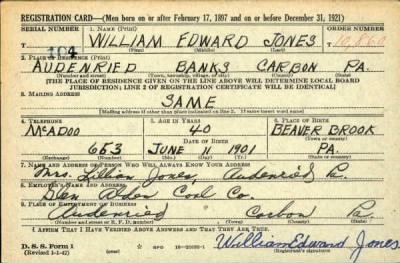 REGISTRATION CARD—(Men born on or after February 17, 1897 and on or before December 31, 1921)
SERIAL NUMBER 1. NAME (Print) ORDER NUMBER
104 WILLIAM EDWARD JONES 10,860
(First) (Middle) (Last)
2. PLACE OF RESIDENCE (Print)
AUDENRIED BANKS CARBON PA.
(Number and street) (Town, township, village, or city) (County) (State)
[THE PLACE OF RESIDENCE GIVEN ON THE LINE ABOVE WILL DETERMINE LOCAL BOARD
JURISDICTION; LINE 2 OF REGISTRATION CERTIFICATE WILL BE IDENTICAL]
3. MAILING ADDRESS
SAME
[Mailing address if other than place indicated on line 2. If same insert word same]
4. TELEPHONE 5. AGE IN YEARS 6. PLACE OF BIRTH
McADOO 40 BEAVER BROOK
DATE OF BIRTH (Town or county)
653 JUNE 11 1901 PA.
(Exchange) (Number) (Mo.) (Day) (Yr.) (State or country)
7. NAME AND ADDRESS OF PERSON WHO WILL ALWAYS KNOW YOUR ADDRESS
Mrs. Lillian Jones, Audenried Pa.
8. EMPLOYER'S NAME AND ADDRESS
Glen Alden Coal Co.
9. PLACE OF EMPLOYMENT OR BUSINESS
Audenried Carbon Pa.
(Number and street or R. F. D. number) (Town) (County) (State)
I AFFIRM THAT I HAVE VERIFIED ABOVE ANSWERS AND THAT THEY ARE TRUE.
D. S. S. Form 1 GPO William Edward Jones
(Revised 1-1-42) (Registrant's signature)